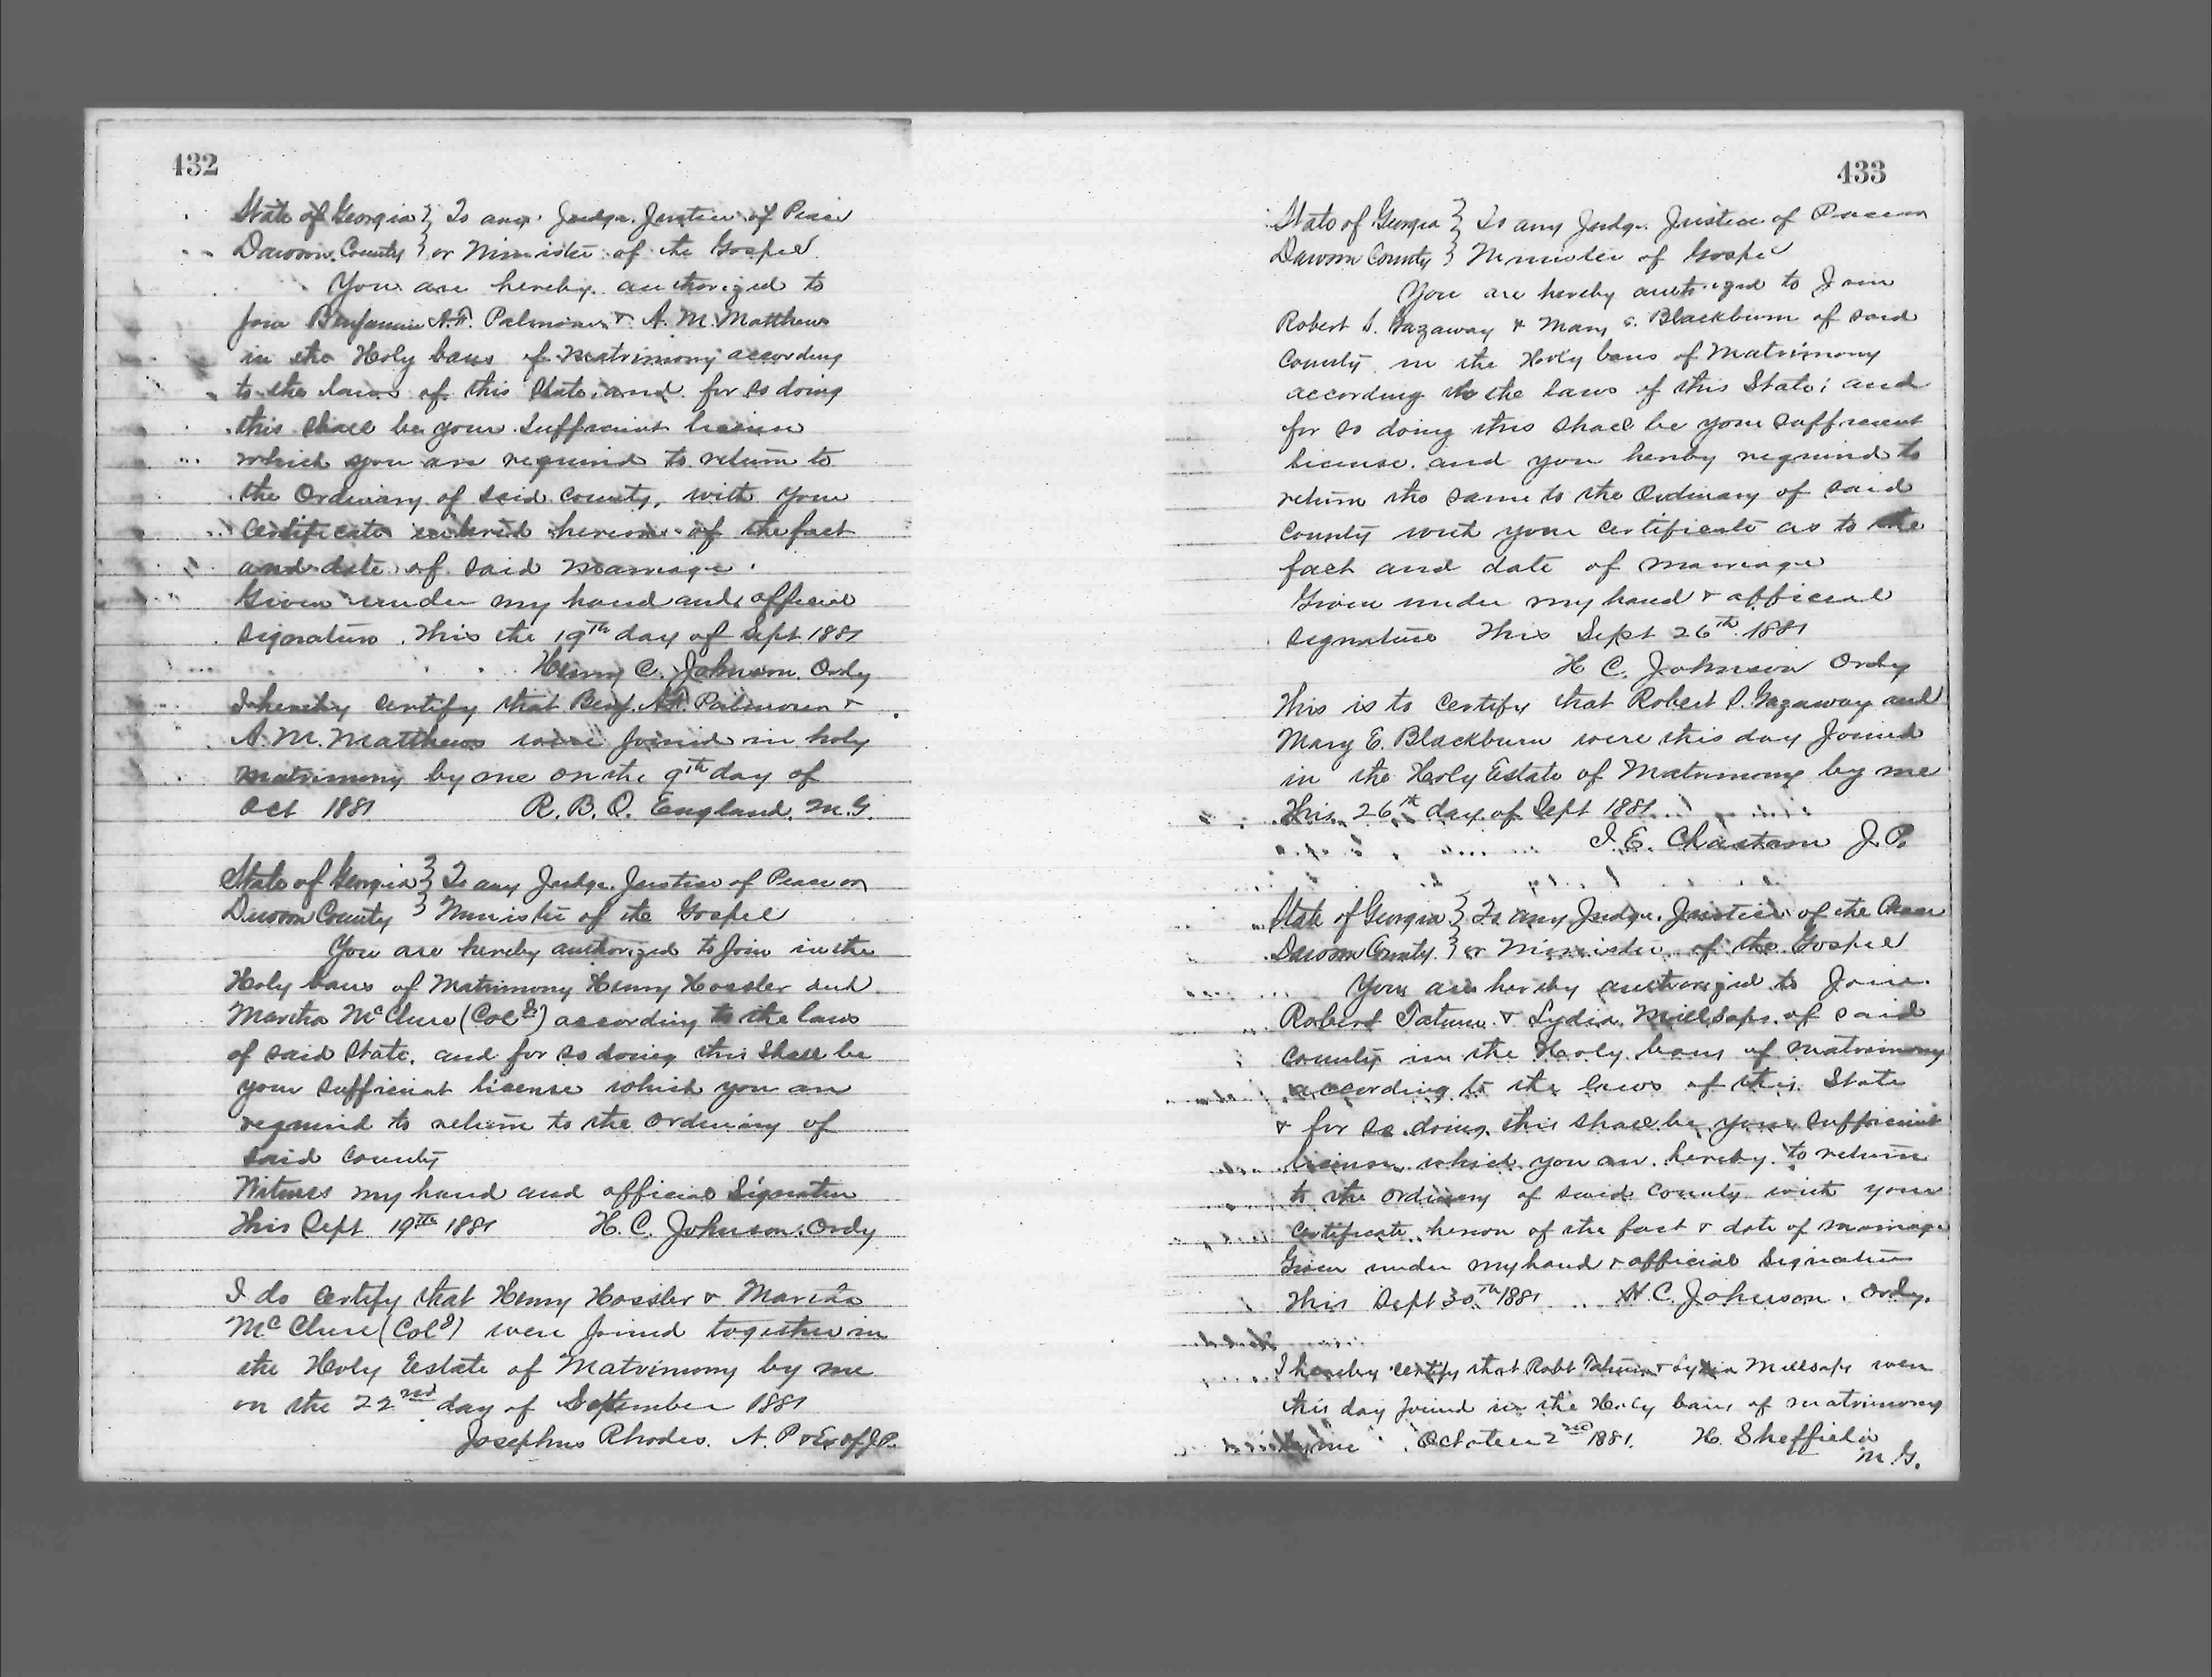 432
State of Georgia } To any Judge. Justice of Peace
Dawson County } or Minister of the Gospel
You are hereby authorized to
Join Benjamin A.F. Palmour & A. M. Matthews
in the Holy bans of Matrimony according
to the laws of this State, and for so doing
this shall be your sufficient license
which you are required to return to
the Ordinary of said County, with your
Certificate entered hereon of the fact
and date of said marriage.
Given under my hand and official
signature, this the 19th day of Sept 1881
Henry C. Johnson, Ordy
I hereby certify that Benj. A.F. Palmour &
A. M. Matthews were joined in holy
Matrimony by me on the 9th day of
Oct 1881 R. B. O. England, M.G.
State of Georgia } To any Judge. Justice of Peace or
Dawson County } Minister of the Gospel
You are hereby authorized to Join in the
Holy bans of Matrimony Henry Hossler and
Martha McClure (Cold) according to the laws
of said State, and for so doing this shall be
your sufficient license which you are
required to return to the Ordinary of
said County
Witness my hand and official Signature
This Sept 19th 1881 H. C. Johnson, Ordy
I do certify that Henry Hossler & Martha
McClure (Cold) were Joined together in
the Holy Estate of Matrimony by me
on the 22nd day of September 1881
Josephus Rhodes. N. P & Ex of J.P.
433
State of Georgia } To any Judge. Justice of Peace or
Dawson County } Minister of Gospel
You are hereby authorized to Join
Robert S. Gazaway & Mary E. Blackburn of said
County in the Holy bans of Matrimony
according to the laws of this State; and
for so doing this shall be your sufficient
license. and you hereby required to
return the same to the Ordinary of said
County with your certificate as to the
fact and date of marriage
Given under my hand & official
signature This Sept 26th 1881
H C. Johnson Ordy
This is to certify that Robert S. Gazaway and
Mary E. Blackburn were this day Joined
in the Holy Estate of Matrimony by me
This 26th day of Sept 1881
J. E. Chastain J. P.
State of Georgia } To any Judge. Justice of the Peace
Dawson County } or Minister of the Gospel
You are hereby authorized to Join
Robert Tatum & Lydia Millsaps of said
County in the Holy bans of matrimony
according to the laws of this State
& for so doing this shall be your sufficient
license which you are hereby to return
to the Ordinary of said County with your
Certificate hereon of the fact & date of marriage
Given under my hand & official signature
This Sept 30th 1881 H. C. Johnson, Ordy.
I hereby certify that Robt Tatum & Lydia Millsaps were
this day Joined in the Holy bans of matrimony
by me October 2nd 1881. H. Sheffield
M. G.